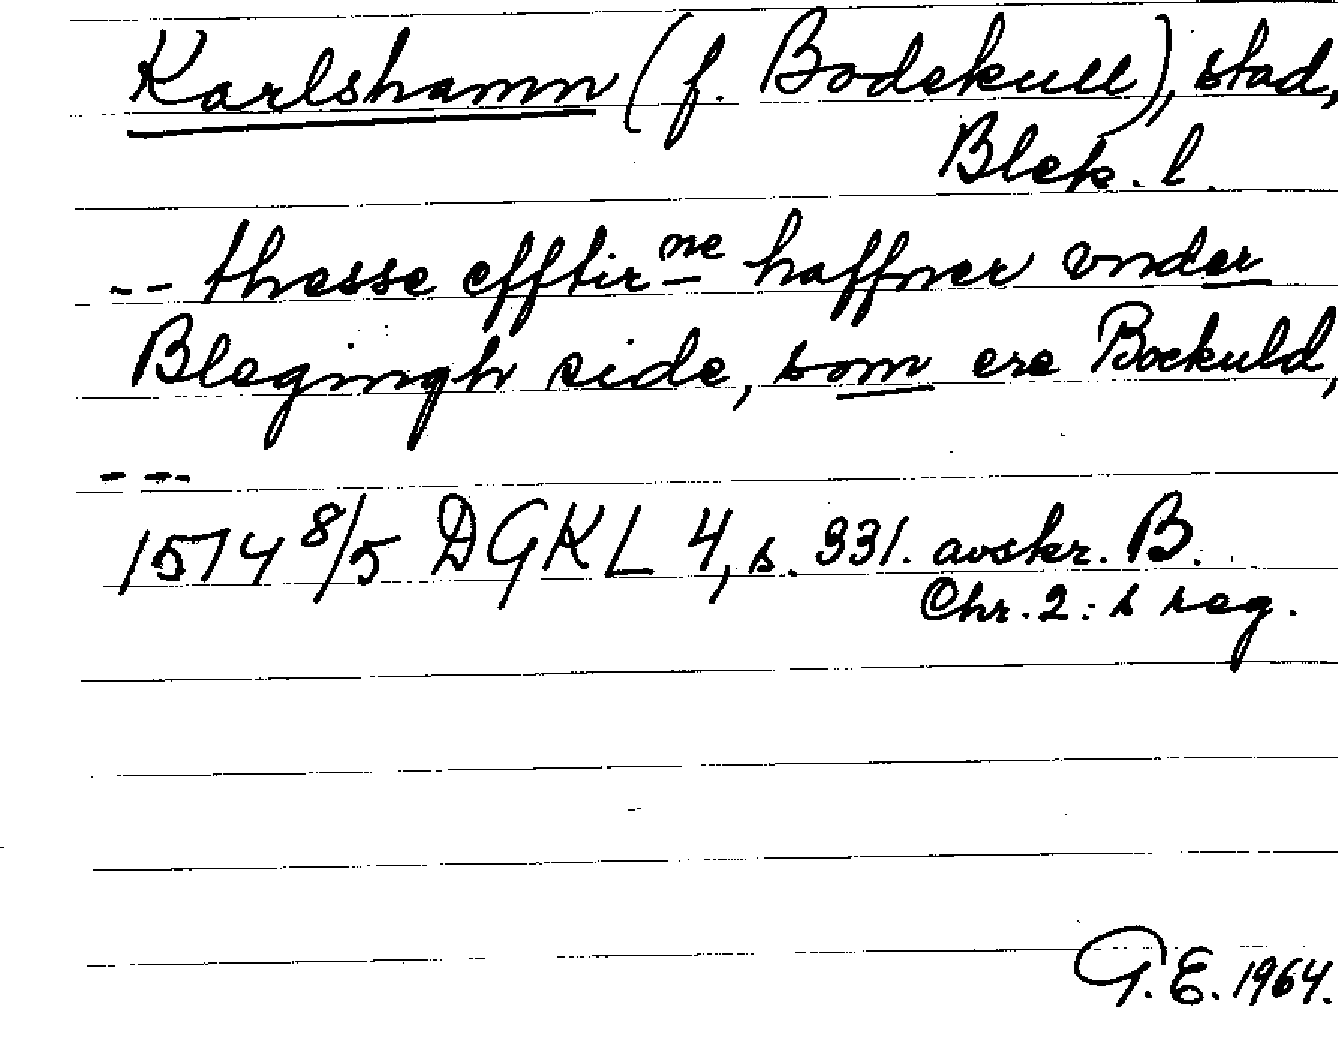 Karlshamn (f. Bodekull), stad,
Blek. l.
-- thesse efftirne haffner vnder
Blegingh side, som ere Bockuld,
-- --
1514 8/5 DGKL 4, s. 331. avskr. B.
Chr. 2:s reg.
G.E. 1964.